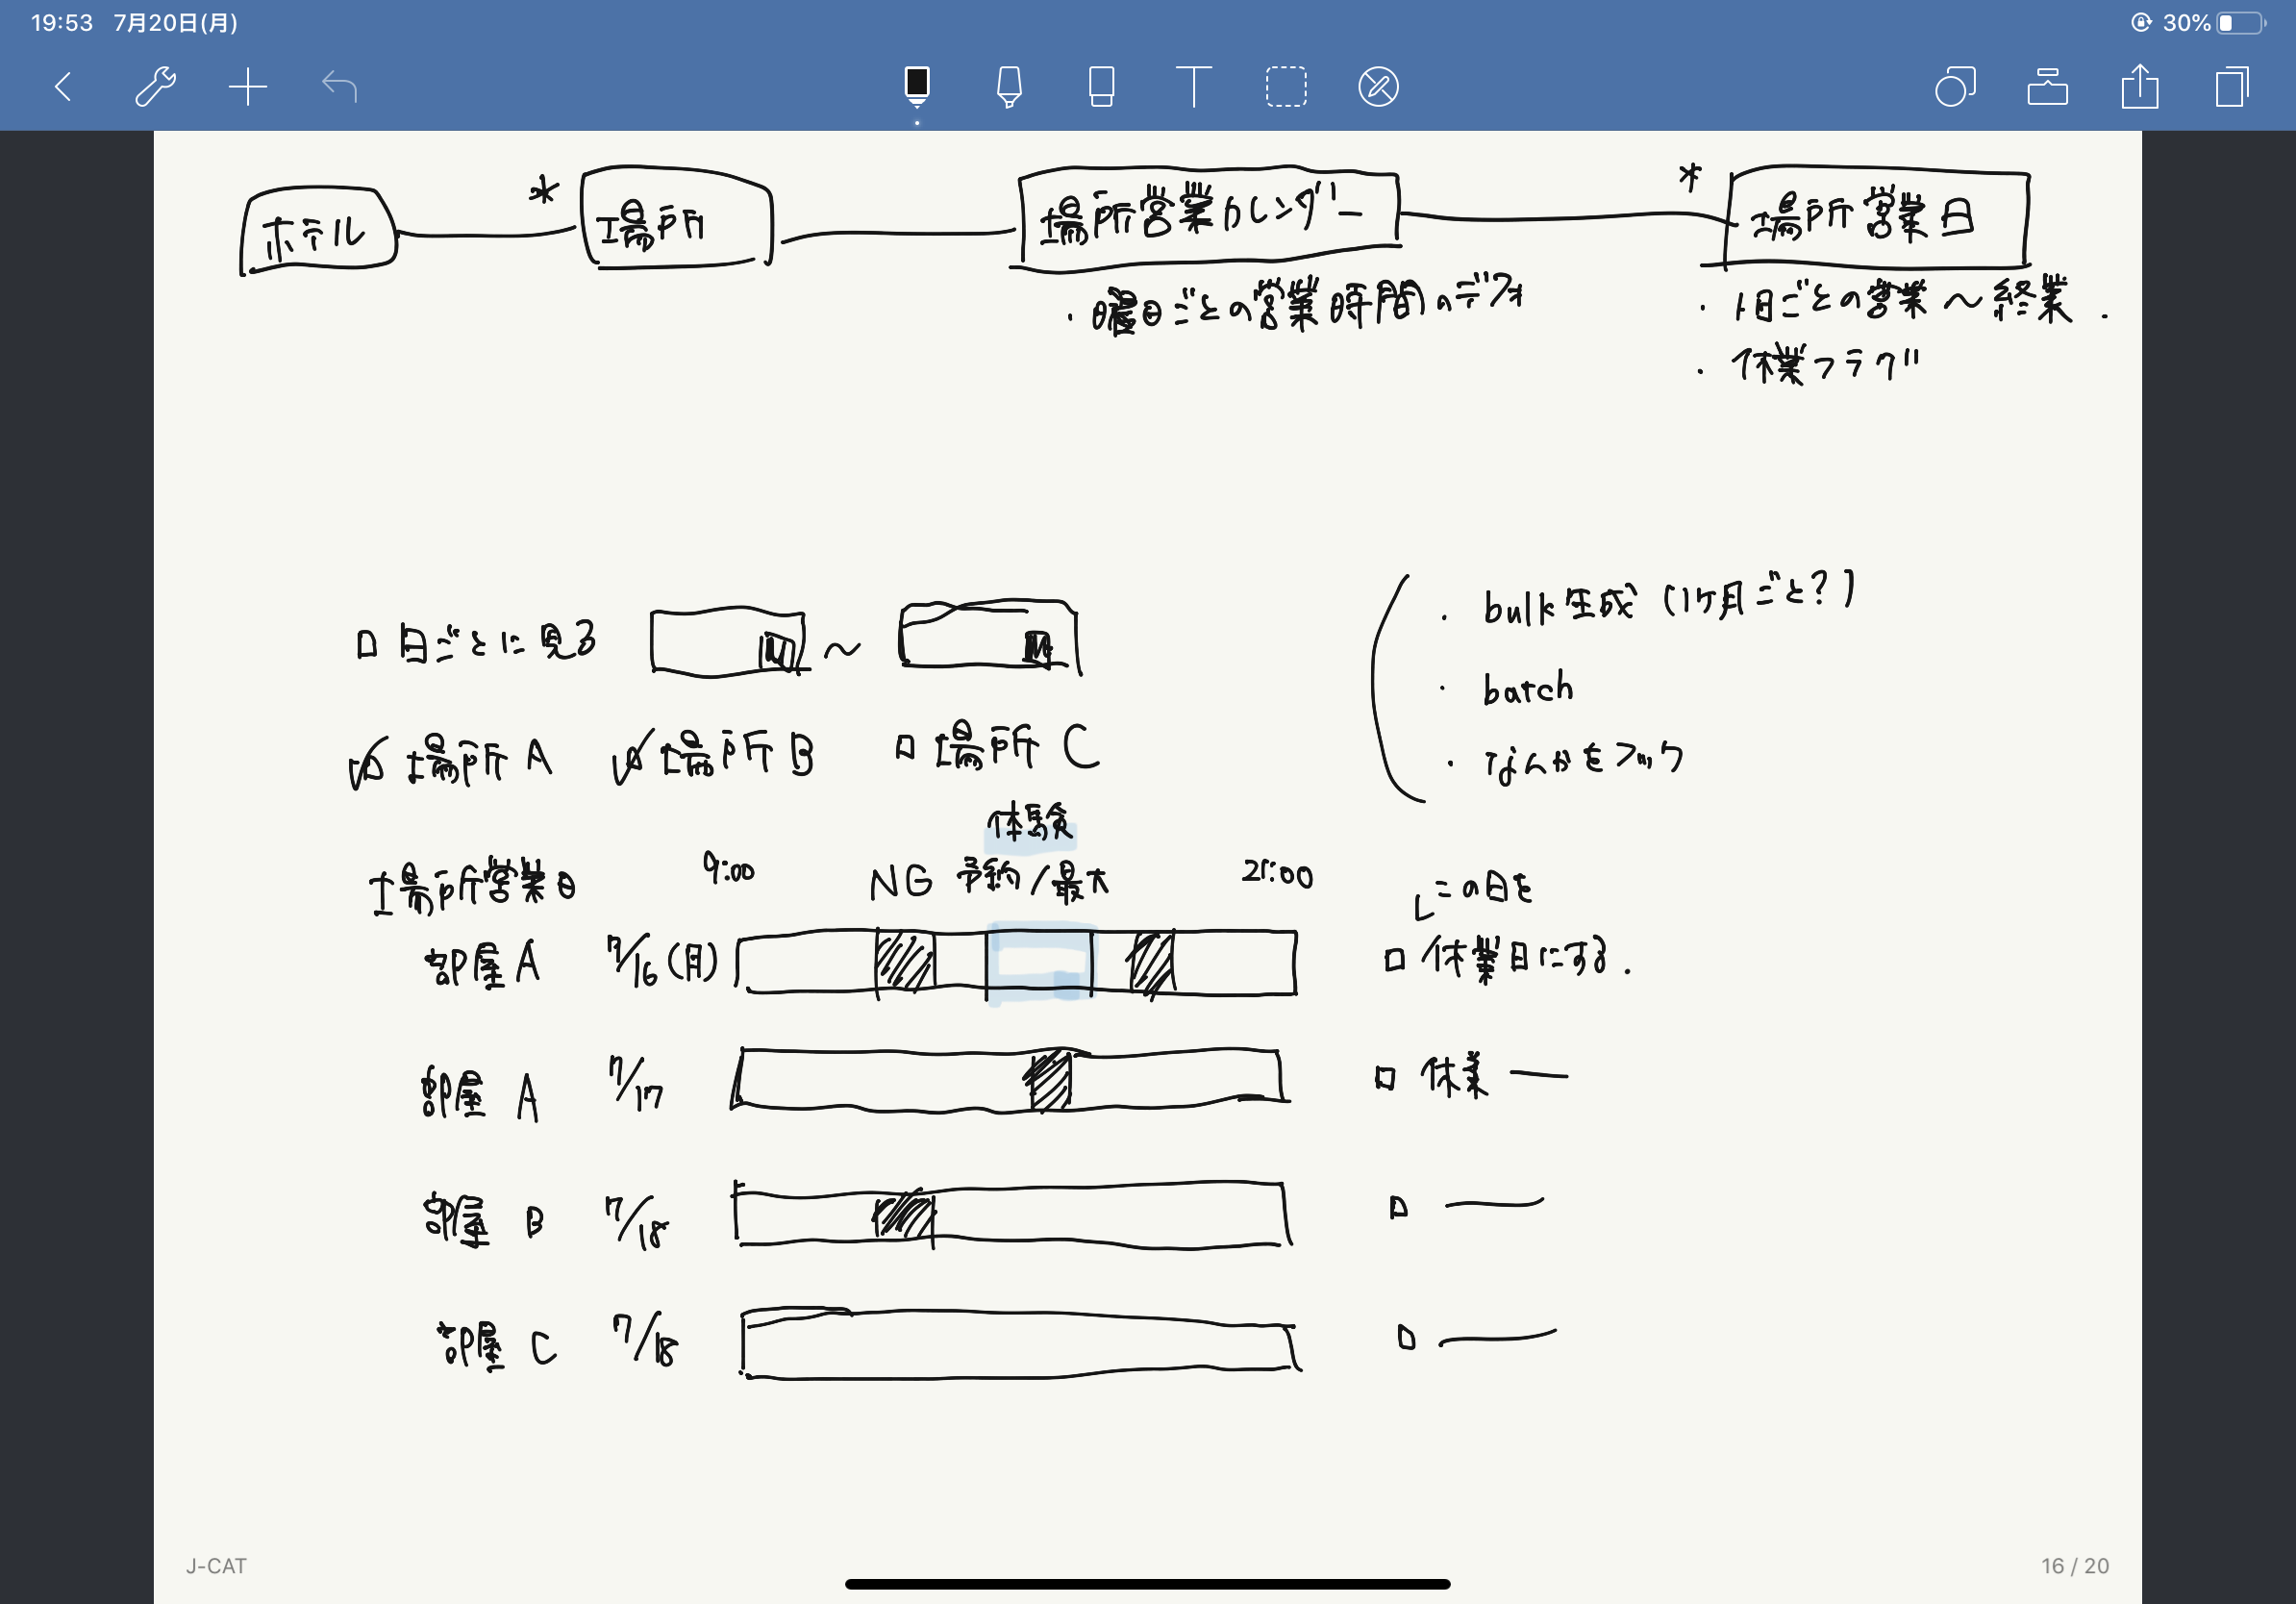 19:53 7月20日(月) 30%
ホテル * 場所 場所営業カレンダー * 場所営業日
・曜日ごとの営業時間のデフォ
・1日ごとの営業〜終業.
・休業フラグ
□ 日ごとに見る 〜
・bulk生成 (1ヶ月ごと?)
・batch
・なんかをフック
☑ 場所 A ☑ 場所 B □ 場所 C
体験
場所営業日 9:00 NG 予約/最大 21:00
この日を
部屋 A 7/16 (月) □ 休業日にする.
部屋 A 7/17 □ 休業
部屋 B 7/18 □
部屋 C 7/18 □
J-CAT 16 / 20